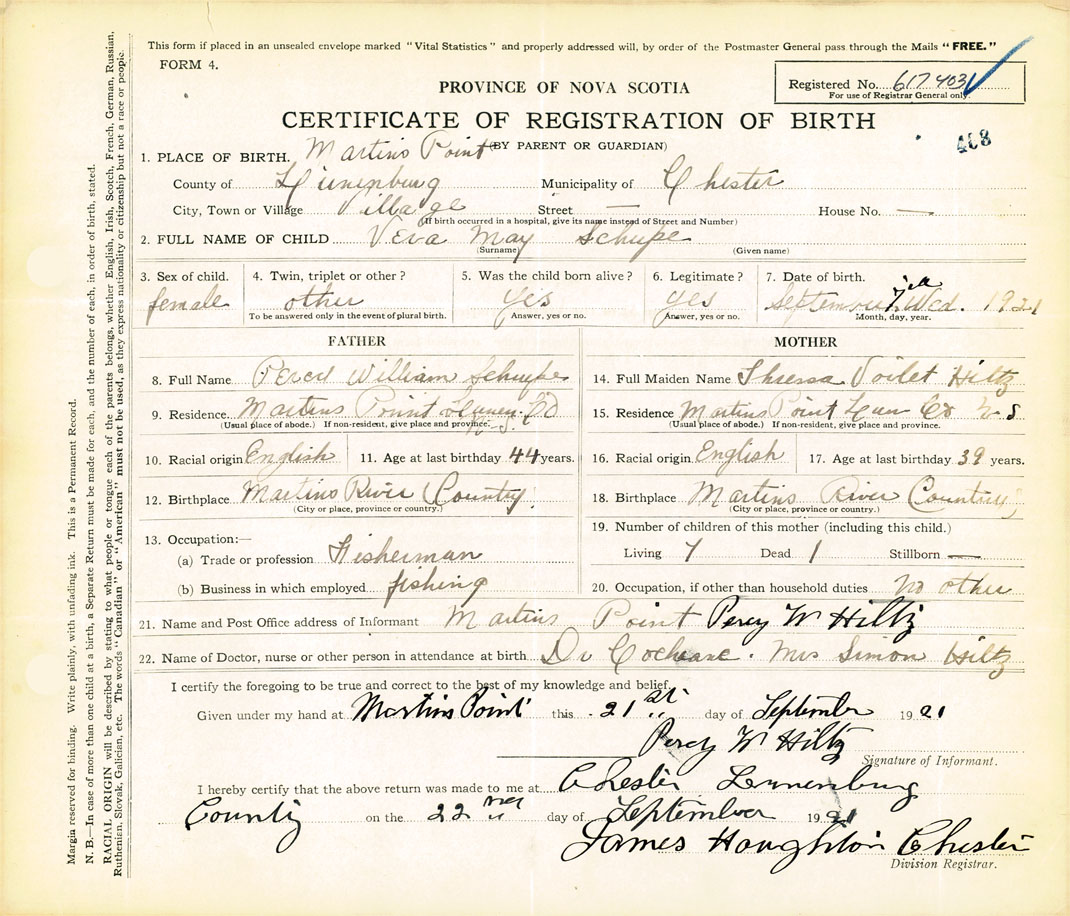 This form if placed in an unsealed envelope marked "Vital Statistics" and properly addressed will, by order of the Postmaster General pass through the Mails "FREE."
FORM 4.
PROVINCE OF NOVA SCOTIA
Registered No. 617403
For use of Registrar General only.
CERTIFICATE OF REGISTRATION OF BIRTH
408
(BY PARENT OR GUARDIAN)
1. PLACE OF BIRTH. Martins Point
County of Lunenburg Municipality of Chester
City, Town or Village Village Street — House No. —
(If birth occurred in a hospital, give its name instead of Street and Number)
2. FULL NAME OF CHILD Veva May Schupe
(Surname) (Given name)
3. Sex of child. 4. Twin, triplet or other? 5. Was the child born alive? 6. Legitimate? 7. Date of birth.
female other yes yes September Wed. 1921
To be answered only in the event of plural birth. Answer, yes or no. Answer, yes or no. Month, day, year.
FATHER MOTHER
8. Full Name Percy William Schupe 14. Full Maiden Name Voilet Hiltz
9. Residence Martins Point 15. Residence Martins Point Lun Co N S
(Usual place of abode.) If non-resident, give place and province. (Usual place of abode.) If non-resident, give place and province.
10. Racial origin English 11. Age at last birthday 44 years. 16. Racial origin English 17. Age at last birthday 39 years.
12. Birthplace Martins River (Country) 18. Birthplace Martins River (Country)
(City or place, province or country.) (City or place, province or country.)
13. Occupation:— 19. Number of children of this mother (including this child.)
(a) Trade or profession Fisherman Living 7 Dead 1 Stillborn —
(b) Business in which employed fishing 20. Occupation, if other than household duties no other
21. Name and Post Office address of Informant Martins Point Percy W Hiltz
22. Name of Doctor, nurse or other person in attendance at birth Dr Cochrane. Mrs Simon Hiltz
I certify the foregoing to be true and correct to the best of my knowledge and belief.
Given under my hand at Martins Point this 21st day of September 1921
Percy W Hiltz
Signature of Informant.
I hereby certify that the above return was made to me at Chester Lunenburg
County on the 22nd day of September 1921
James Houghton Chester
Division Registrar.
Margin reserved for binding. Write plainly, with unfading ink. This is a Permanent Record.
N. B.—In case of more than one child at a birth, a Separate Return must be made for each, and the number of each, in order of birth, stated.
RACIAL ORIGIN will be described by stating to what people or tongue each of the parents belongs, whether English, Irish, Scotch, French, German, Russian,
Ruthenian, Slovak, Galician, etc. The words "Canadian" or "American" must not be used, as they express nationality or citizenship but not a race or people.